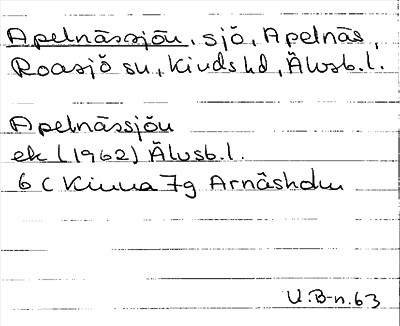 Apelnässjön, sjö, Apelnäs,
Roasjö sn, Kinds hd, Älvsb.l.
Apelnässjön
ek (1962) Älvsb.l.
6 C Kinna 7g Arnäsholm
U.B-n.63